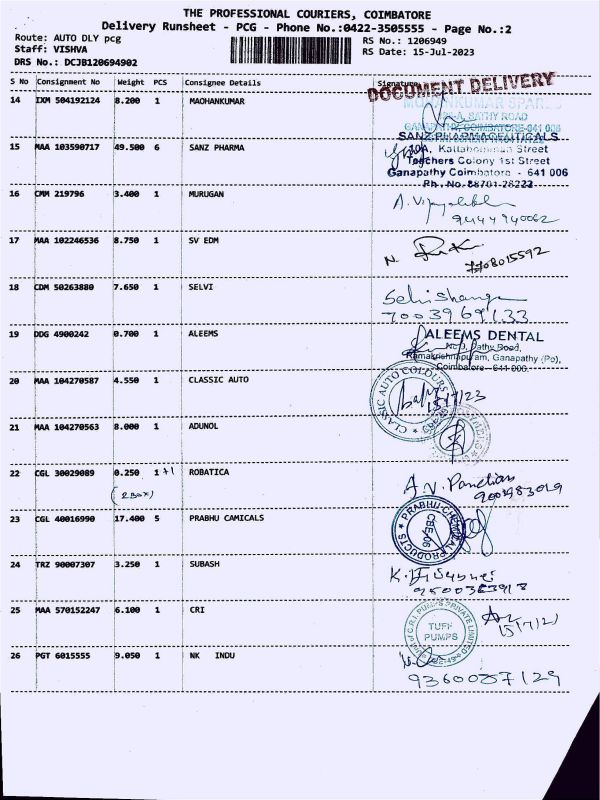 THE PROFESSIONAL COURIERS, COIMBATORE
Delivery Runsheet - PCG - Phone No.:0422-3505555 - Page No.:2
Route: AUTO DLY pcg
RS No.: 1206949
Staff: VISHVA
RS Date: 15-Jul-2023
DRS No.: DCJB120694902
S No Consignment No Weight PCS Consignee Details Signature
DOCUMENT DELIVERY
14 IXM 504192124 8.200 1 MAOHANKUMAR
MOHANKUMAR SPARES
SATHY ROAD
GANAPATHY, COIMBATORE-641 006
SANZ PHARMACEUTICALS
15 MAA 103590717 49.500 6 SANZ PHARMA
Street
Teachers Colony 1st Street
Ganapathy Coimbatore - 641 006
Ph. No. 88701-28222
16 CMM 219796 3.400 1 MURUGAN
9444940062
17 MAA 102246536 8.750 1 SV EDM
N.
7708015592
18 CDM 50263880 7.650 1 SELVI
7003969133
19 DDG 4900242 0.700 1 ALEEMS
ALEEMS DENTAL
Sathy Road,
Ramakrishnapuram, Ganapathy (Po),
Coimbatore - 641 006.
20 MAA 104270587 4.550 1 CLASSIC AUTO
CLASSIC AUTO COLOURS
15/7/23
21 MAA 104270563 8.000 1 ADUNOL
22 CGL 30029089 0.250 1 +1 ROBATICA
(2 BOX)
A.V. Pandian
23 CGL 40016990 17.400 5 PRABHU CAMICALS
PRABHU CHEMICAL PRODUCTS
CBE-06
24 TRZ 90007307 3.250 1 SUBASH
25 MAA 570152247 6.100 1 CRI
C.R.I. PUMPS PRIVATE LIMITED
TUFF
PUMPS
CBE-49
26 PGT 6015555 9.050 1 NK INDU
9360087129